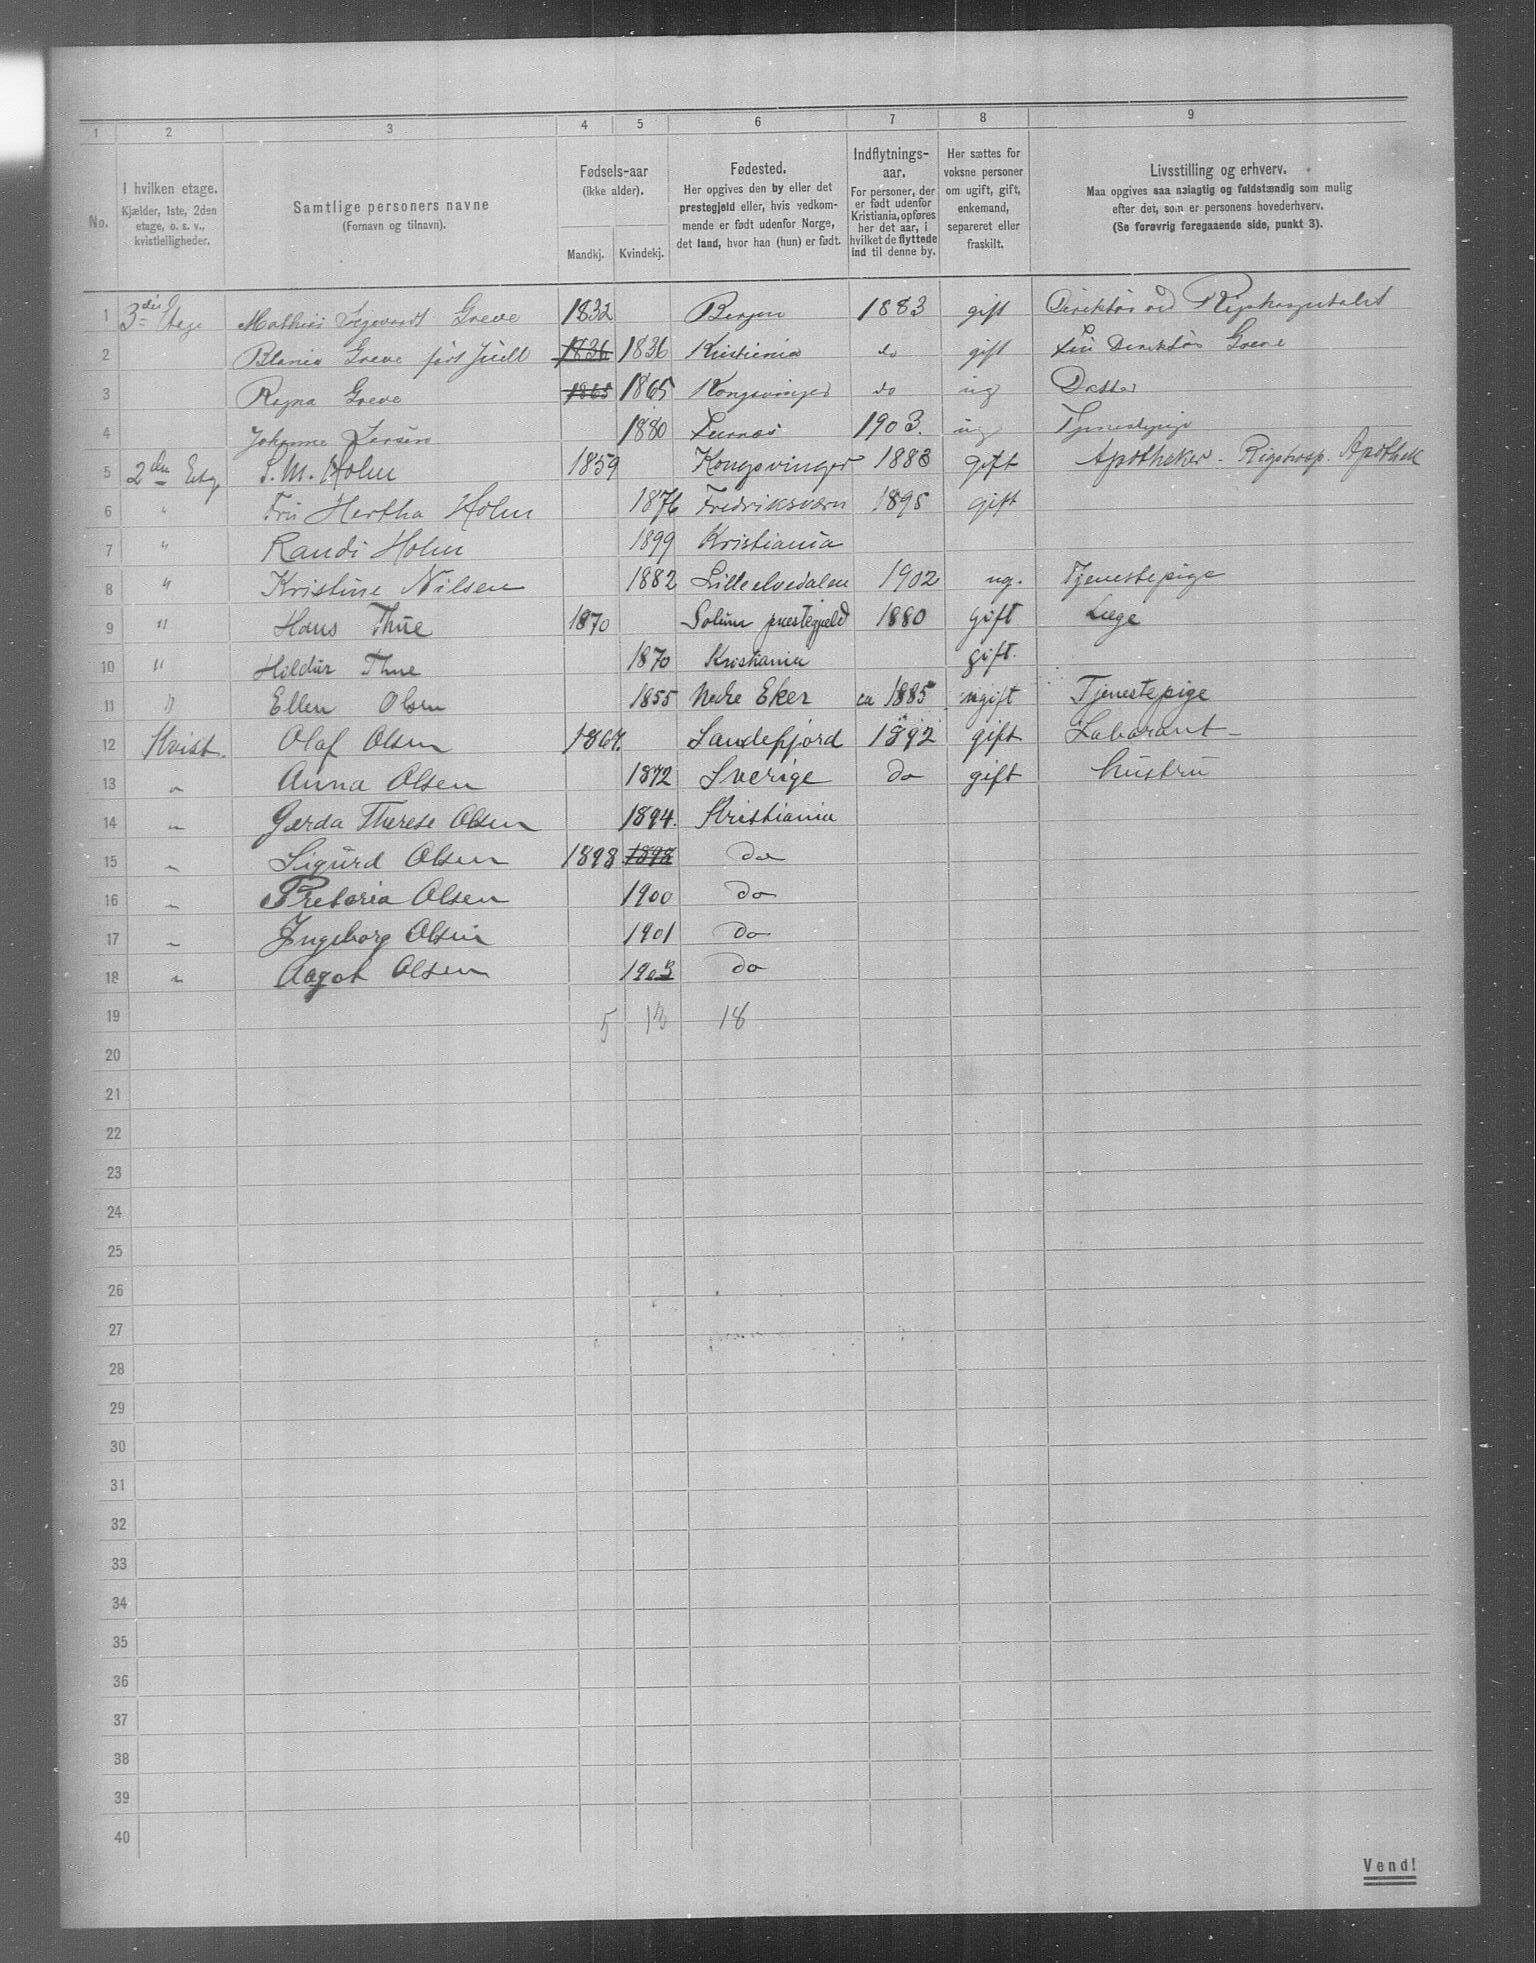 1 2 3 4 5 6 7 8 9
No.
I hvilken etage.
Kjælder, 1ste, 2den
etage, o. s. v.,
kvistleiligheder.
Samtlige personers navne
(Fornavn og tilnavn).
Fødsels-aar
(ikke alder).
Mandkj. Kvindekj.
Fødested.
Her opgives den by eller det
prestegjeld eller, hvis vedkom-
mende er født udenfor Norge,
det land, hvor han (hun) er født.
Indflytnings-
aar.
For personer, der
er født udenfor
Kristiania, opføres
her det aar, i
hvilket de flyttede
ind til denne by.
Her sættes for
voksne personer
om ugift, gift,
enkemand,
separeret eller
fraskilt.
Livsstilling og erhverv.
Maa opgives saa nøiagtig og fuldstændig som mulig
efter det, som er personens hovederhverv.
(Se forøvrig foregaaende side, punkt 3).
1 3die Etage Mathias Greve 1832 Bergen 1883 gift Direktør ved Rigshospitalet
2 Greve født Juell 1836 1836 Kristiania do gift Fru Direktør Greve
3 Ragna Greve 1865 1865 Kongsvinger do ug Datter
4 Johanne 1880 1903. ug Tjenestepige
5 2den Etg S. M. Holm 1859 Kongsvinger 1883 gift Apotheker - Rigshosp. Apothek
6 " Fru Hertha Holm 1876 Fredriksværn 1895 gift
7 " Randi Holm 1899 Kristiania
8 " Kristine Nilsen 1882 Lilleelvedalen 1902 ug. Tjenestepige
9 " Hans Thue 1870 Solum prestegjeld 1880 gift Læge
10 " Hildur Thue 1870 Kristiania gift.
11 " Ellen Olsen 1855 Nedre Eker ca 1885 ugift Tjenestepige
12 Kvist. Olaf Olsen 1867. Sandefjord 1892 gift Laborant -
13 " Anna Olsen 1872 Sverige do gift hustru
14 " Gerda Therese Olsen 1894. Kristiania
15 " Sigurd Olsen 1898 1898 do
16 " Pretoria Olsen 1900 do
17 " Ingeborg Olsen 1901 do
18 " Aagot Olsen 1903 do
19 5 13 18
20
21
22
23
24
25
26
27
28
29
30
31
32
33
34
35
36
37
38
39
40
Vend!